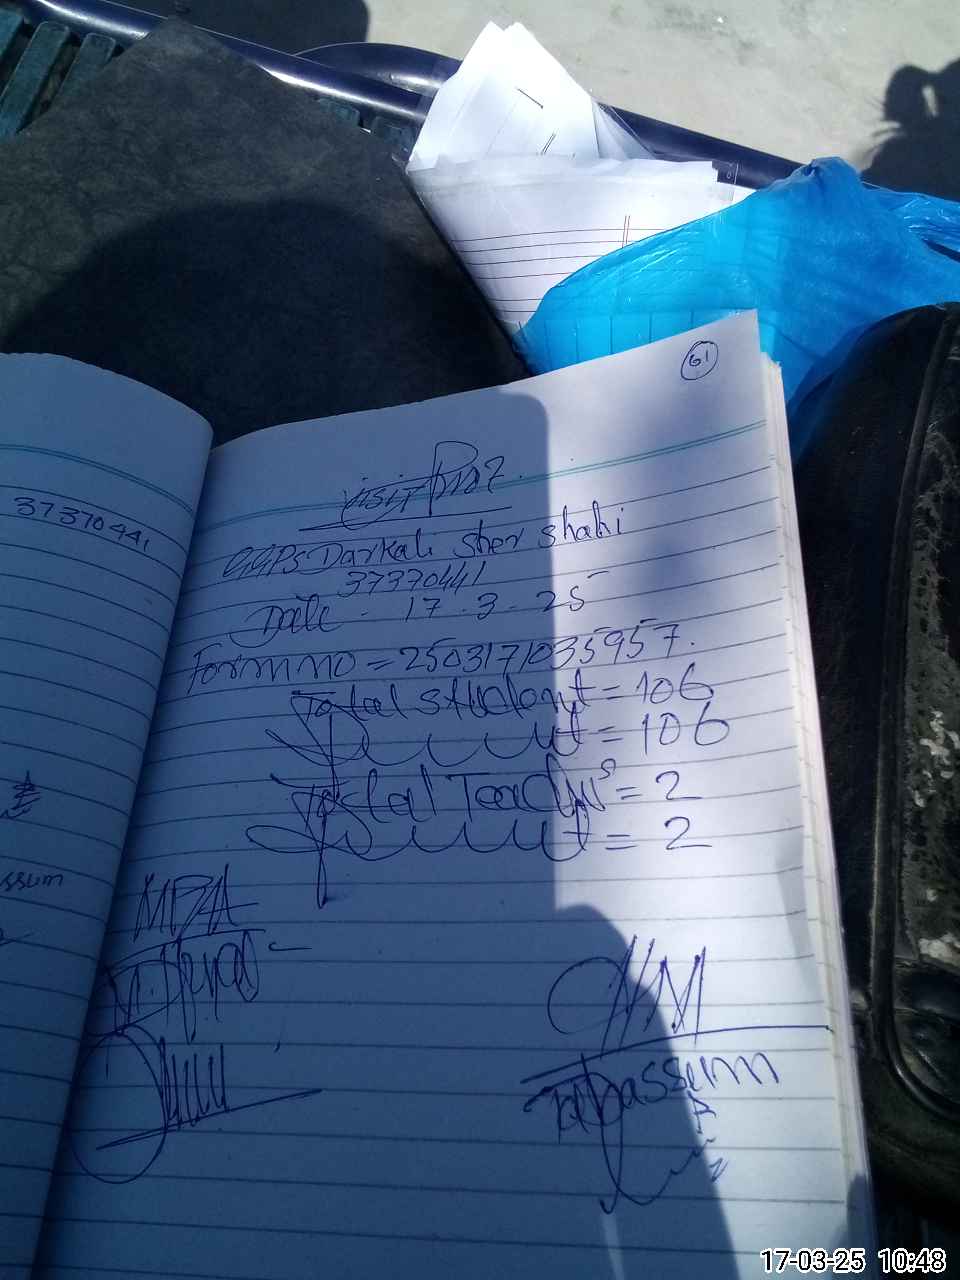 61
37370441
Visit
GGPS Darkali Sher Shahi
37370441
Date - 17.3-25
Form no = 2503171035957.
Total student = 106
= 106
Total Teachers = 2
= 2
ssum
MPA
HM
Tabassum
17-03-25 10:48